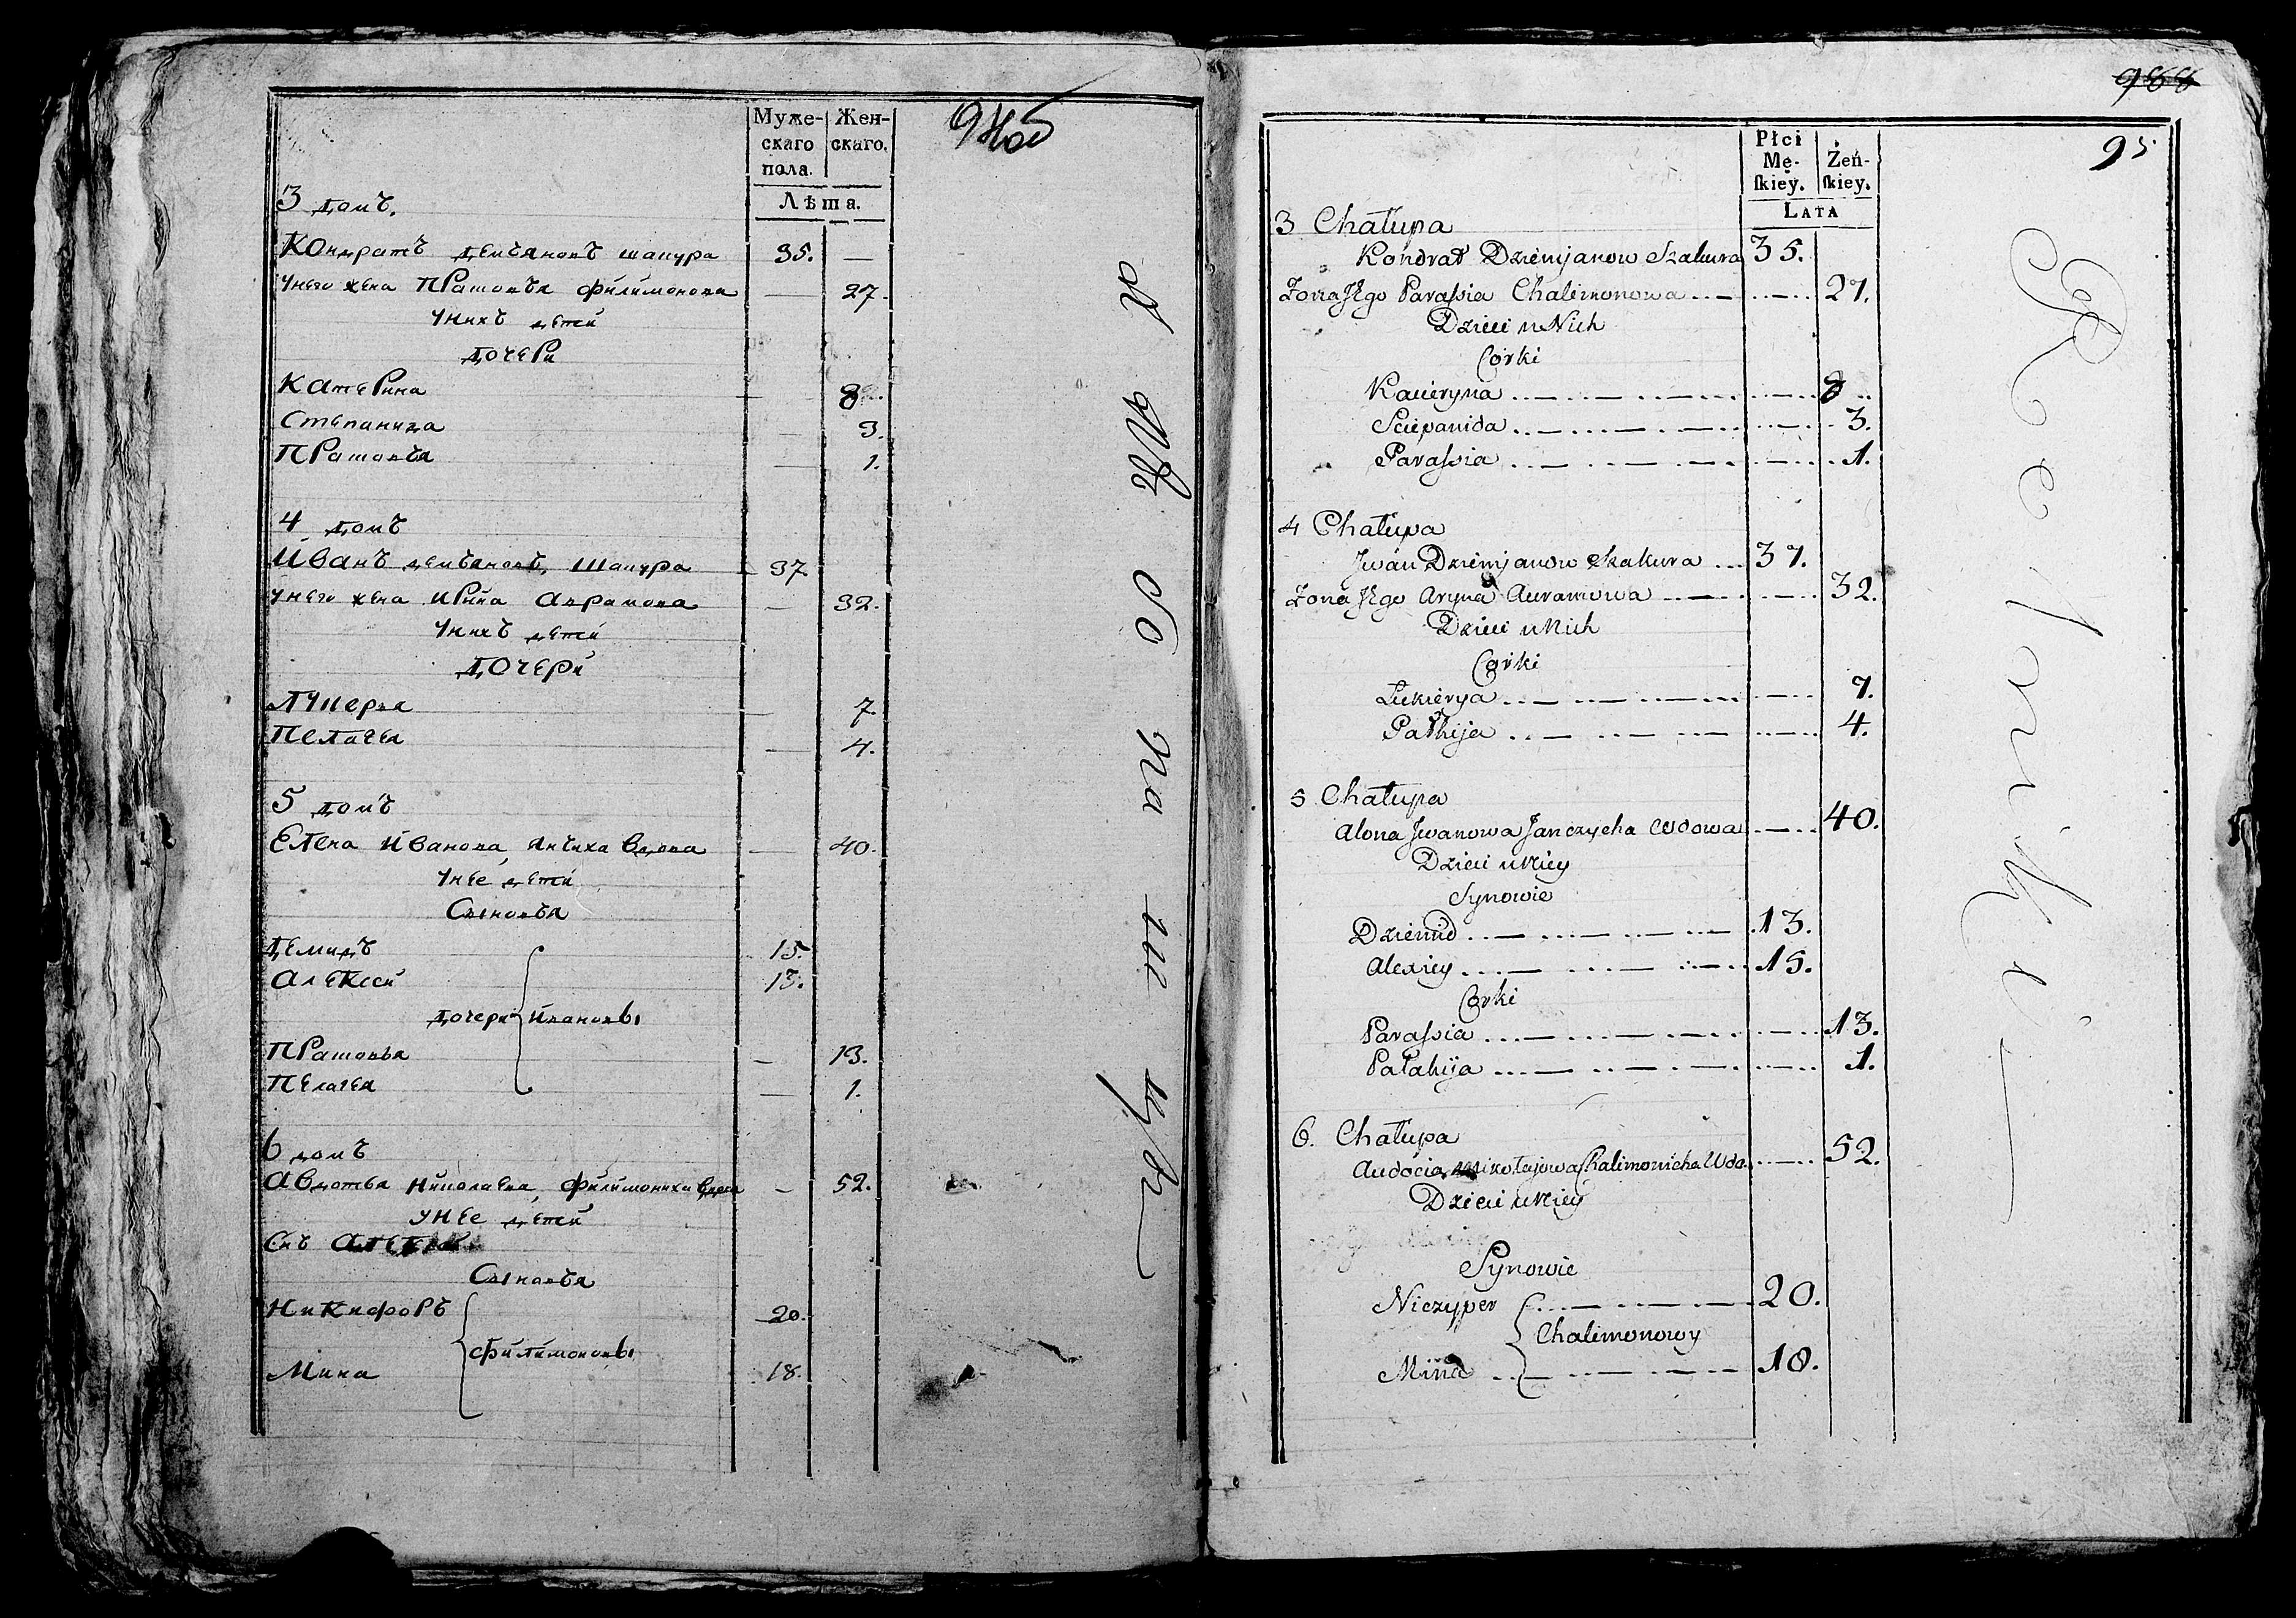 Муже-
скаго
пола.
Жен-
скаго.
Лѣта.
3 домъ.
Кондратъ демьяновъ шакура 35. —
унего жена Прасковья филимонова — 27.
Унихъ детей
дочери
Катерина — 8.
Степанида — 3.
1.
4 домъ
Иванъ демьяновъ, шакура 37.
унего жена Ирина Аврамова — 32.
Унихъ детей
дочери
Лукерья — 7.
Пелагея — 4.
5 домъ
Елена Иванова, янчиха вдова — 40.
Унее детей
Сыновья
Демидъ 15.
Алексей 13.
дочери Ивановы
— 13.
Пелагея — 1.
6 домъ
Авдотья Николаева, филимониха вдова — 52.
унее детей
Сыновья
Никифоръ 20.
филимоновы
Мина 18.
988
95
Płci
Mę-
ſkiey.
Żeń-
ſkiey.
LATA
3 Chałupa
Kondrat Dziemjanow Szakura 35.
Zona Jego Paraſsia Chalimonowa 27.
Dzieci u Nich
Corki
Kacieryna 8
Sciepanida 3.
Paraſsia 1.
4 Chałupa
Jwan Dziemjanow Szakura 37.
Zona Jego Aryna Auramowa 32.
Dzieci u Nich
Corki
Łukierya 7.
Pałhija 4.
5 Chałupa
Alona Jwanowa Janczycha Wdowa 40.
Dzieci u Niey
Synowie
Dziemid 13.
Alexiey 15.
Corki
Paraſsia 13.
Pałahija 1.
6. Chałupa
Audocia Mikołajowa Chalimonicha Wdo. 52.
Dzieci u Niey
Synowie
Niczyper 20.
Chalimonowy
Mina 18.